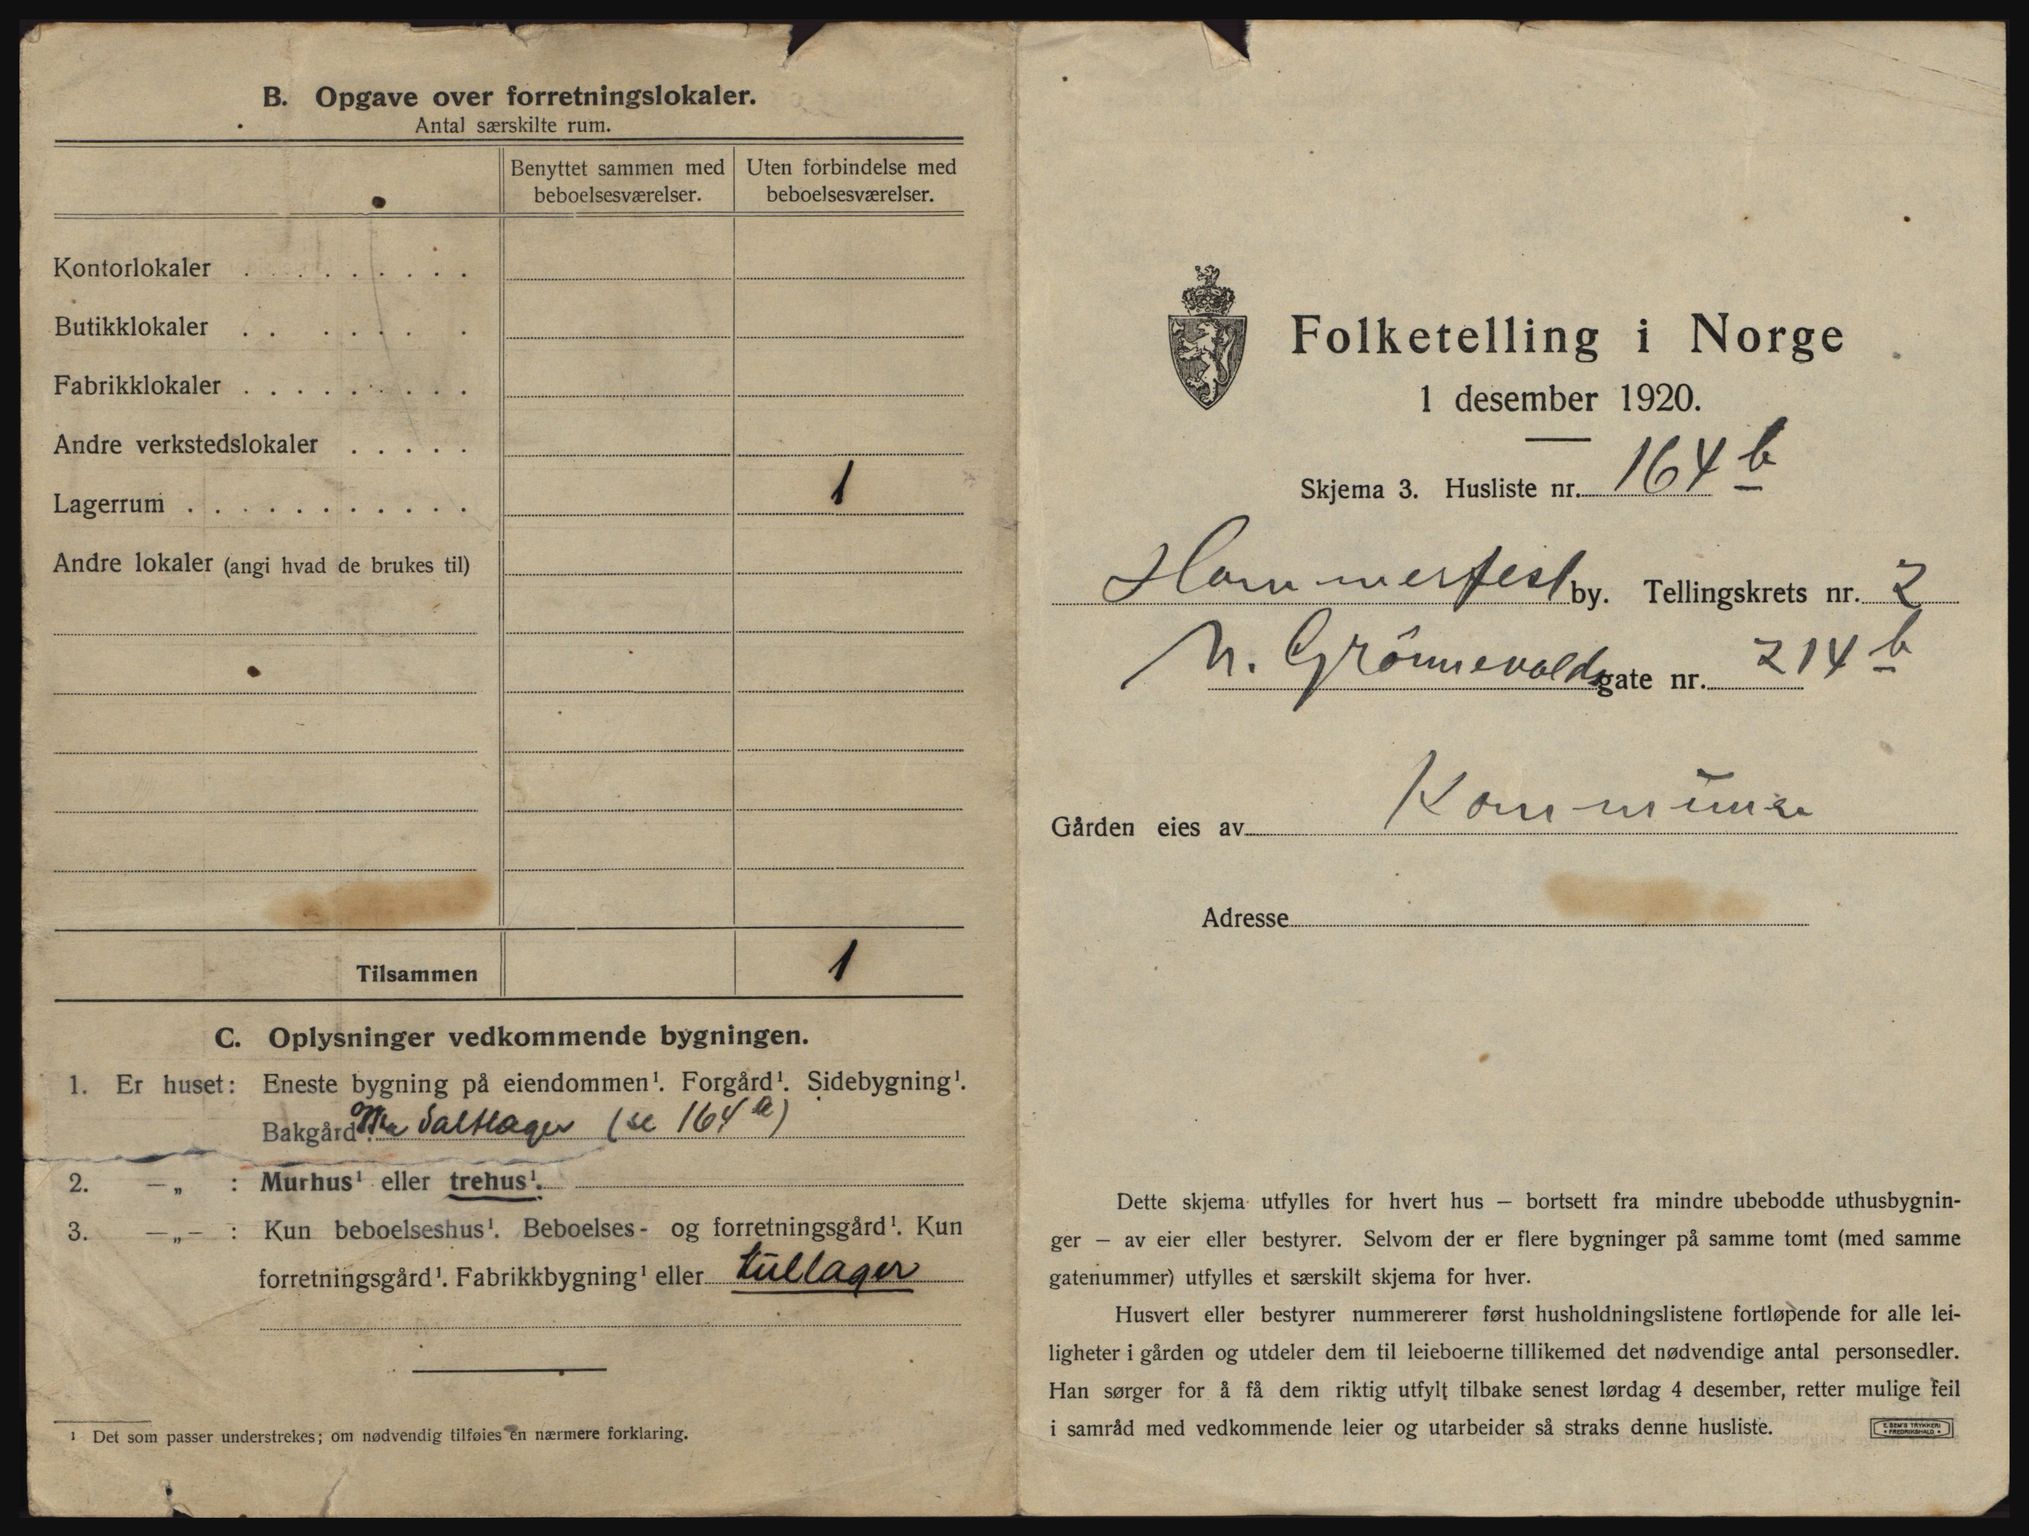 B. Opgave over forretningslokaler.
Antal særskilte rum.
Benyttet sammen med beboelsesværelser.
Uten forbindelse med beboelsesværelser.
Kontorlokaler . . . . . . . . .
Butikklokaler . . . . . . .
Fabrikklokaler . . . . . . . . .
Andre verkstedslokaler . . . . .
Lagerrum . . . . . . . . . . . 1
Andre lokaler (angi hvad de brukes til)
Tilsammen 1
C. Oplysninger vedkommende bygningen.
1. Er huset: Eneste bygning på eiendommen¹. Forgård¹. Sidebygning¹.
Bakgård¹. Saltlager (se 164 a)
2. —„ : Murhus¹ eller trehus¹.
3. —„— : Kun beboelseshus¹. Beboelses- og forretningsgård¹. Kun
forretningsgård¹. Fabrikkbygning¹ eller kullager
¹ Det som passer understrekes; om nødvendig tilføies en nærmere forklaring.
Folketelling i Norge
1 desember 1920.
Skjema 3. Husliste nr. 164 b
Hammerfest by. Tellingskrets nr. 2
N. Grönnevolds gate nr. 214 b
Gården eies av Kommune
Adresse
Dette skjema utfylles for hvert hus — bortsett fra mindre ubebodde uthusbygnin-
ger — av eier eller bestyrer. Selvom der er flere bygninger på samme tomt (med samme
gatenummer) utfylles et særskilt skjema for hver.
Husvert eller bestyrer nummererer først husholdningslistene fortløpende for alle lei-
ligheter i gården og utdeler dem til leieboerne tillikemed det nødvendige antal personsedler.
Han sørger for å få dem riktig utfylt tilbake senest lørdag 4 desember, retter mulige feil
i samråd med vedkommende leier og utarbeider så straks denne husliste.
E. SEM'S TRYKKERI
• FREDRIKSHALD •